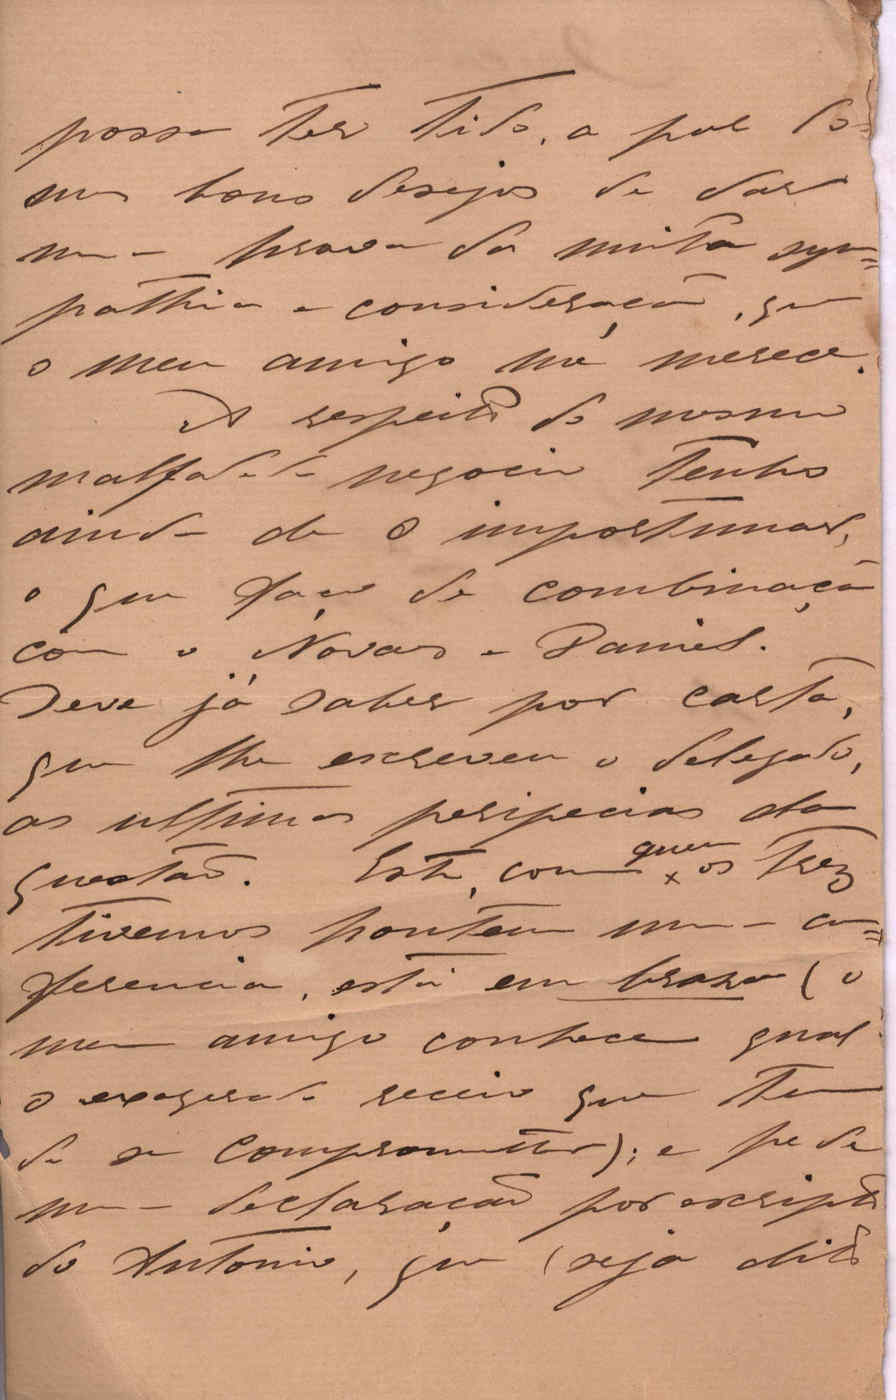 possa ter tido, a par do
meu bons desejos de dar
uma prova da muita sym=
pathia e consideração, que
o meu amigo me merece.
A respeito do mesmo
malfadado negocio tenho
ainda de o importunar,
o que faço de combinação
com o Novaes e Daniel.
Deve já saber por carta,
que lhe escreveu o delegado,
as ultimas peripecias da
questão. Este, com quem os trez
tivemos hontem uma con=
ferencia, está em braza (o
meu amigo conhece qual
o exagerado receio que tem
de se comprometter); e pede
uma declaração por escripto
do Antonio, que (seja dito